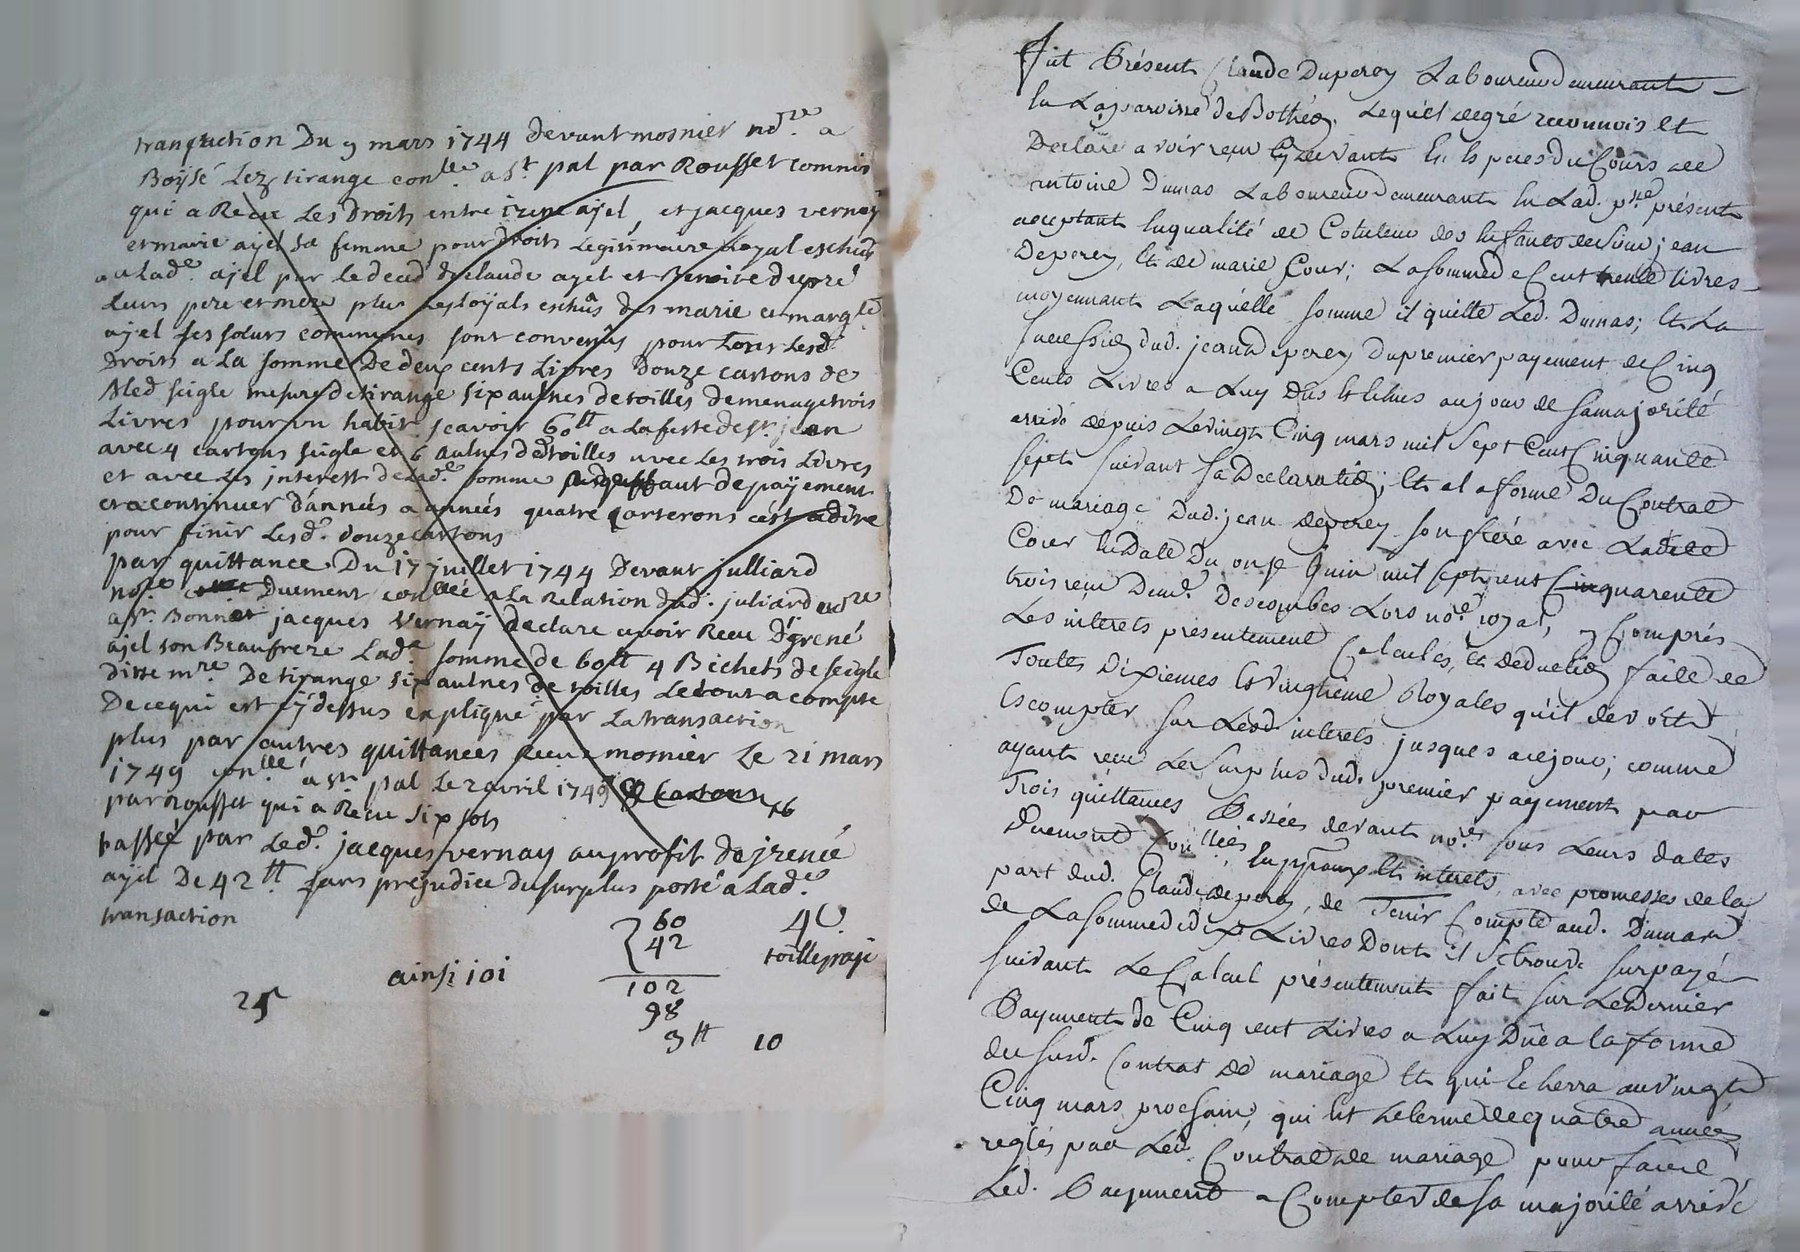 tranſaction Du 9 mars 1744 devant mosnier nore a
Boysé Lez tirange conlée a St pal par Rousset commis
qui a Recu Les Droits entre irene ajel, et jacques vernay
et marie ajel sa femme pour droits Legitimaire Loyal eschus
a Lade ajel par Le deced declaude ayel et Benoite dupré
leurs pere et mere plus Les loÿals eschûs des marie et margte
ajel ses soeurs communes sont convenûs pour tous Lesd.
Droits a La somme De deux cents Livres Douze cartons de
Bled seigle mesure de tirange six aulnes de toilles de menage trois
Livres pour un habit sçavoir 60lt a La feste de st jean
avec 4 cartons seigle et 6 aulnes de toilles avec Les trois Livres
et avec Les interest de Lade somme aut de payement
et a continuer D'années a années quatre carterons c'est adire
pour finir Lesd. douze cartons
par quittance Du 17 juillet 1744 Devant julliard
nore Duement conllée a La Relation dud. juliard nore
a st Bonnet jacques Vernaÿ declare avoir Recu D'jrené
ajel son Beaufrere Lade somme de 60lt 4 Bichets de seigle
ditte mre De tirange six aulnes de toilles Le tout a compte
De ce qui est cÿ dessus expliqué par La transaction
plus par autres quittances Recu mosnier Le 21 mars
1749 conllé a st pal Le 2 avril 1749
par rousset qui a Recu six sols
passée par Led. jacques vernay au profit de jrenée
ayel De 42lt sans prejudice du surplus porté a Lade
transaction
60
42
ainsi 101
102
98
3lt 10
4C
toille
25
Fut Présent Claude Duperey Laboureur demeurant
En La parroisse de Bothéon, Lequel de gré reconnois Et
Declare avoir reçu cy devant En Especes du Cours de
antoine Dumas Laboureur demeurant En Lad. psse présent
acceptant En qualité de Cotuteur des Enfants de feu jean
Deperey, Et de marie Cour; La somme de Cent trente livres
moyennant Laquelle somme il quitte Led. Dumas; Et La
succession dud. jean Deperey Du premier payement de Cinq
Cents Livres a Luy Dus Et Echus au jour de sa majorité
arrivé depuis Le vingt Cinq mars mil sept Cent Cinquante
sept suivant sa Declaration; Et a la forme Du Contrat
De mariage Dud. jean deperey son frere avec Ladite
Cour En Date Du onze Juin mil sept cent quarente
trois reçu Deud. Descombes Lors nore royal, y Compris
Les interets présentement Calculés, Et deduction faite de
Toutes Dixiemes Et vingtieme Royales qu'il devoit
Escompter sur Lesd interets jusques a ce jour; comme
ayant reçu Le surplus dud. premier payement par
Trois quittances Passées devant nores sous Leurs dates
Duement Conllées, En ppaux Et interets, avec promesses de la
part dud. Claude deperey, de Tenir Compte aud. Dumas
de La somme de dix Livres Dont il se trouve surpayé
suivant Le Calcul présentement fait sur Le dernier
Payement de Cinq cent Livres a Luy Dûe a la forme
du susd. Contrat de mariage Et qui Echerra au vingt
Cinq mars prochain, qui Est Le terme de quatre années
reglés par Led. Contrat de mariage pour faire
Led. Payement a Compter de sa majorité arrivé